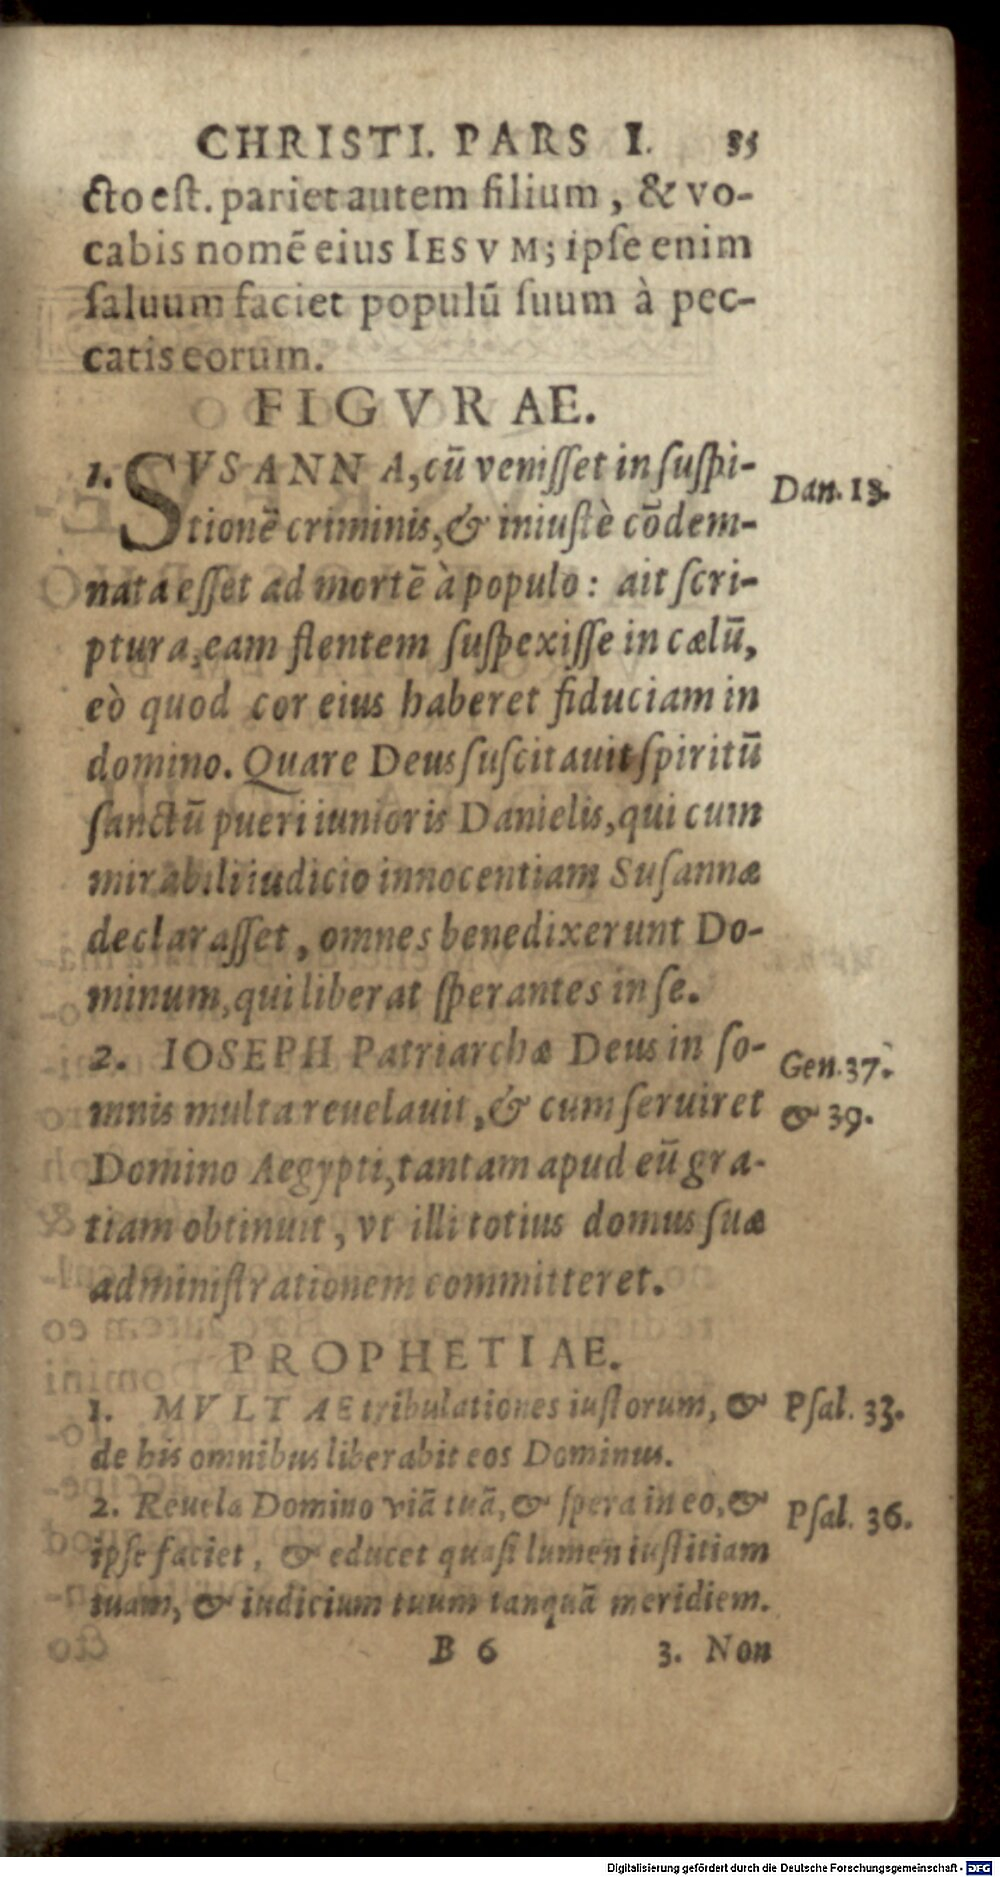 CHRISTI. PARS I. 35
cto eſt. pariet autem filium, & vo-
cabis nomẽ eius IESVM; ipſe enim
ſaluum faciet populũ ſuum à pec-
catis eorum.
FIGVRAE.
1. SVSANNA, cũ veniſſet in ſuſpi-
tionẽ criminis, & iniuſtè cõdem-
nata eſſet ad mortẽ à populo: ait ſcri-
ptura, eam flentem ſuſpexiſſe in cælũ,
eò quod cor eius haberet fiduciam in
domino. Quare Deus ſuſcitauit ſpiritũ
ſanctũ pueri iunioris Danielis, qui cum
mirabili iudicio innocentiam Suſannæ
declaraſſet, omnes benedixerunt Do-
minum, qui liberat ſperantes in ſe.
Dan. 13.
2. IOSEPH Patriarchæ Deus in ſo-
mnis multa reuelauit, & cum ſeruiret
Domino Aegypti, tantam apud eũ gra-
tiam obtinuit, vt illi totius domus ſuæ
adminiſtrationem committeret.
Gen. 37.
& 39.
PROPHETIAE.
1. MVLTAE tribulationes iuſtorum, &
de his omnibus liberabit eos Dominus.
Pſal. 33.
2. Reuela Domino viã tuã, & ſpera in eo, &
ipſe faciet, & educet quaſi lumen iuſtitiam
tuam, & iudicium tuum tanquã meridiem.
Pſal. 36.
B 6 3. Non
Digitalisierung gefördert durch die Deutsche Forschungsgemeinschaft - DFG